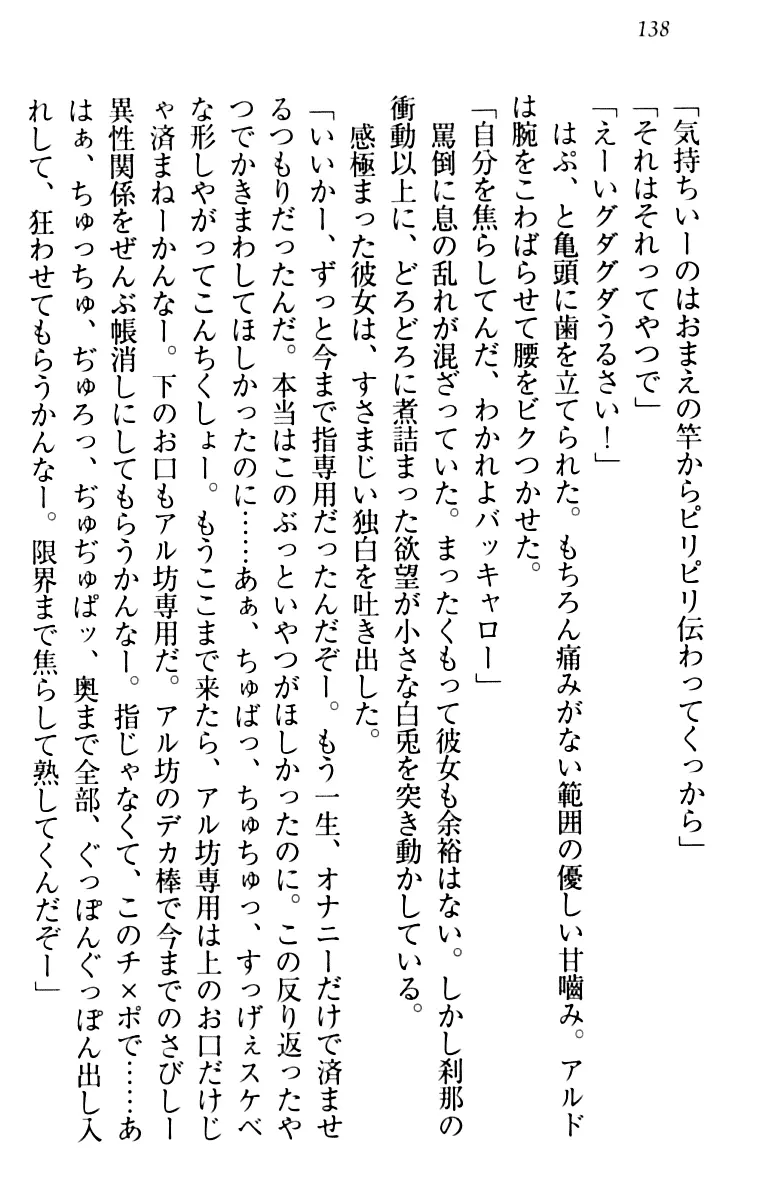 138
「気持ちいーのはおまえの竿からピリピリ伝わってくっから」
「それはそれってやつで」
「えーいグダグダうるさい！」
はぷ、と亀頭に歯を立てられた。もちろん痛みがない範囲の優しい甘嚙み。アルド
は腕をこわばらせて腰をビクつかせた。
「自分を焦らしてんだ、わかれよバッキャロー」
罵倒に息の乱れが混ざっていた。まったくもって彼女も余裕はない。しかし刹那の
衝動以上に、どろどろに煮詰まった欲望が小さな白兎を突き動かしている。
感極まった彼女は、すさまじい独白を吐き出した。
「いいかー、ずっと今まで指専用だったんだぞー。もう一生、オナニーだけで済ませ
るつもりだったんだ。本当はこのぶっといやつがほしかったのに。この反り返ったや
つでかきまわしてほしかったのに……あぁ、ちゅばっ、ちゅちゅっ、すっげぇスケベ
な形しやがってこんちくしょー。もうここまで来たら、アル坊専用は上のお口だけじ
ゃ済まねーかんなー。下のお口もアル坊専用だ。アル坊のデカ棒で今までのさびしー
異性関係をぜんぶ帳消しにしてもらうかんなー。指じゃなくて、このチ×ポで……あ
はぁ、ちゅっちゅ、ぢゅろっ、ぢゅぢゅぱッ、奥まで全部、ぐっぽんぐっぽん出し入
れして、狂わせてもらうかんなー。限界まで焦らして熟してくんだぞー」